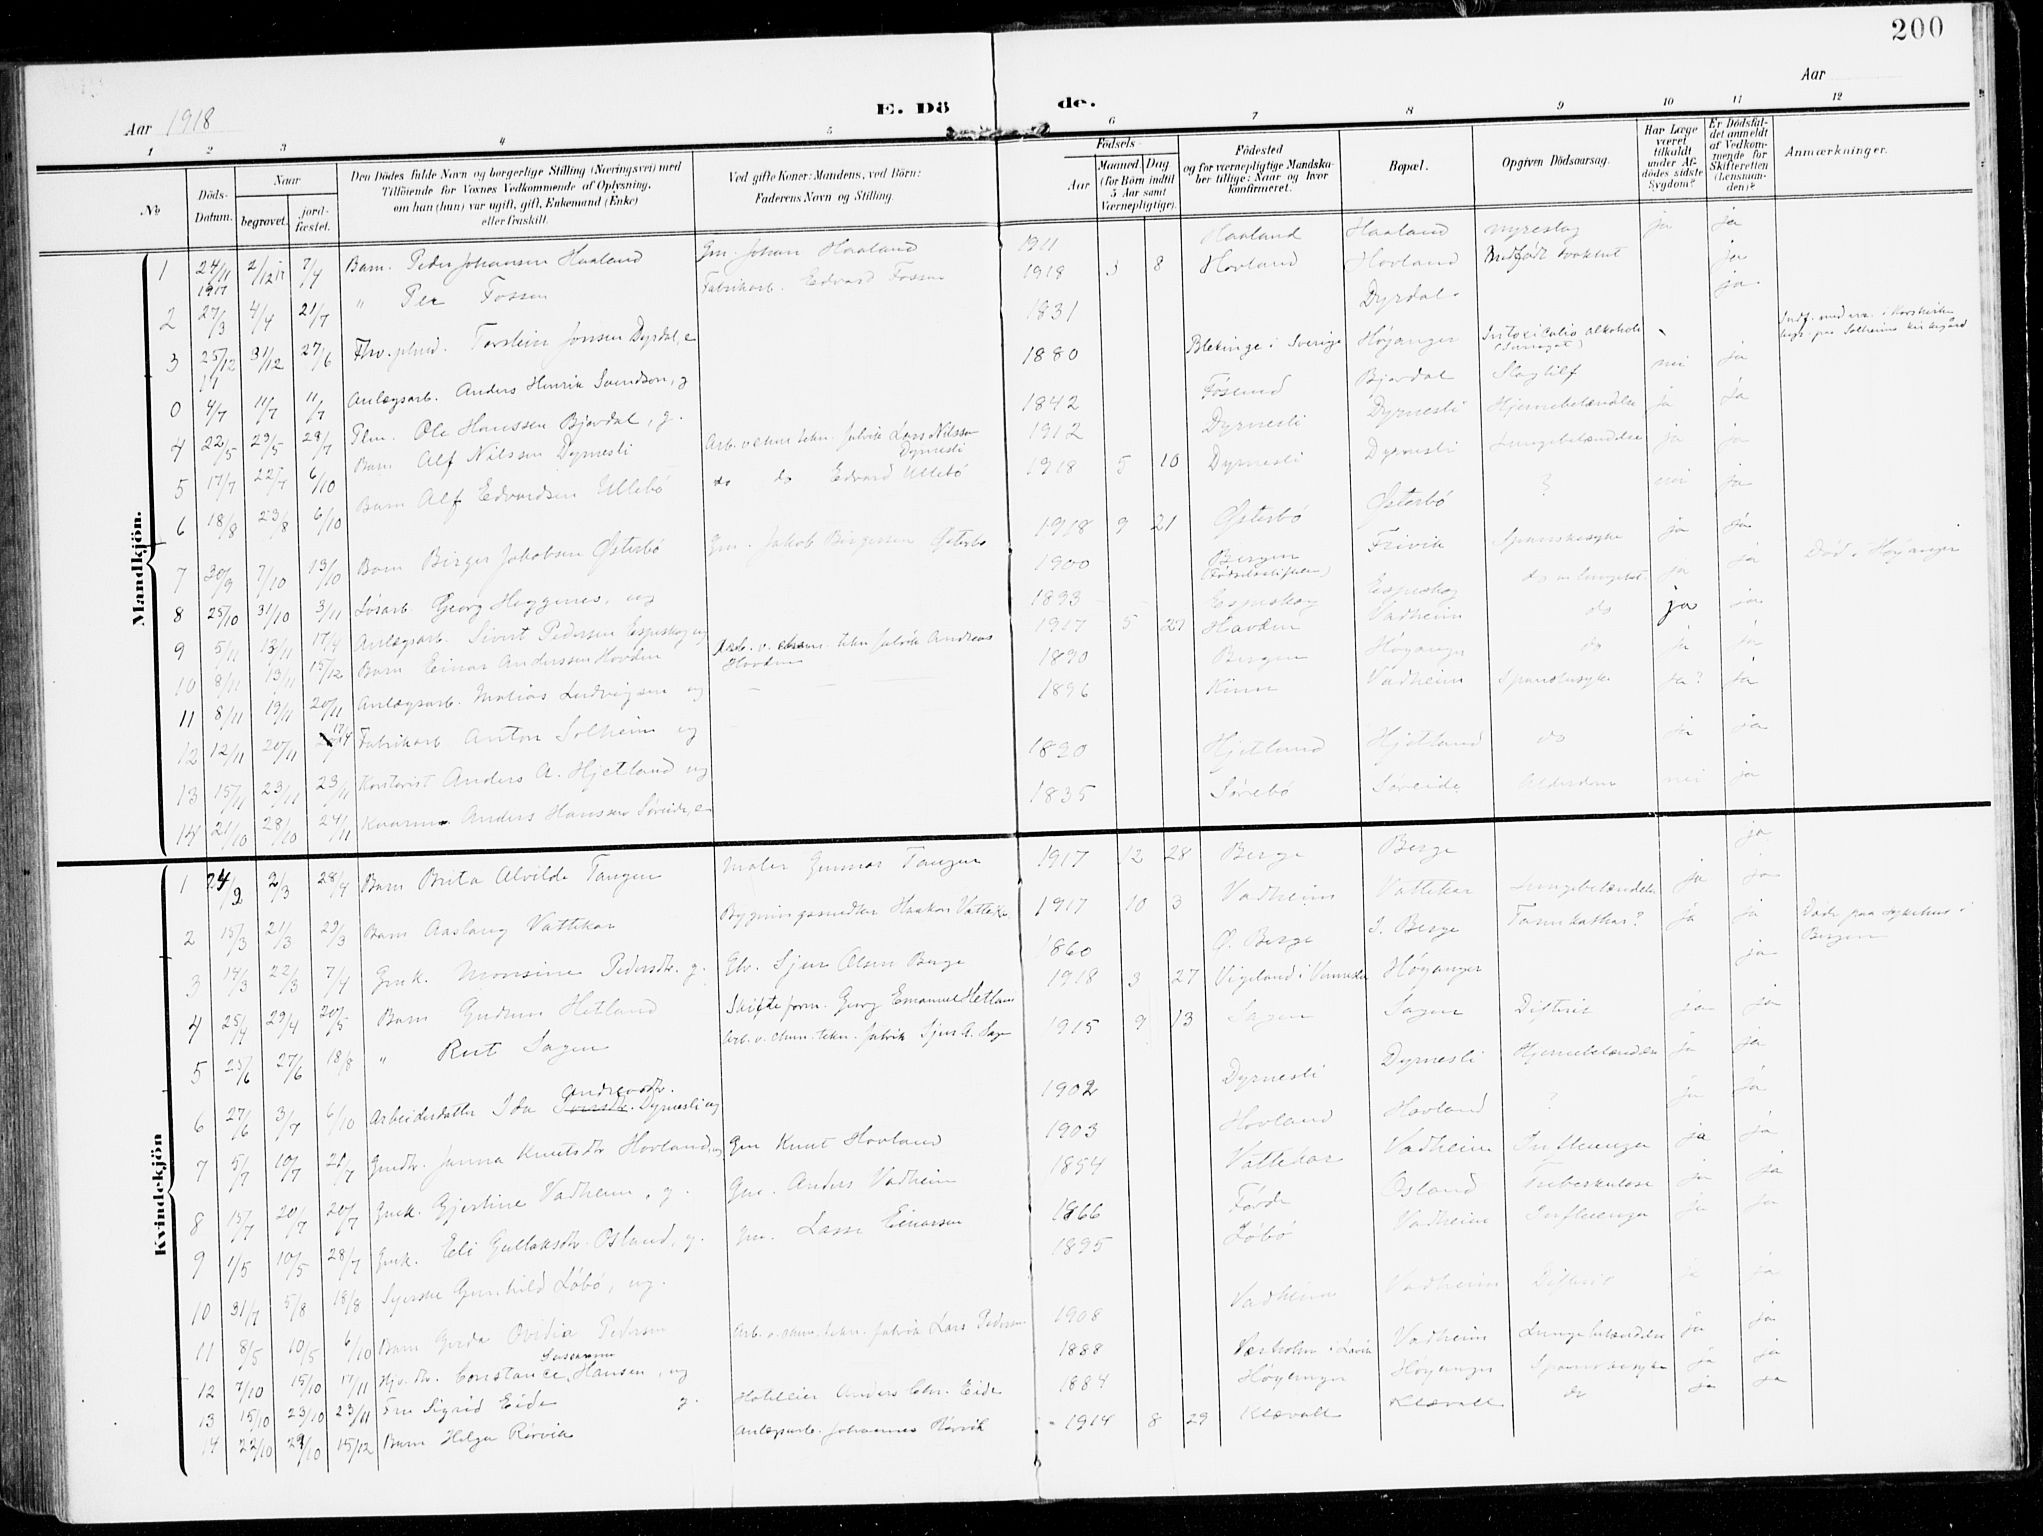 200
Aar 1918
E. Dö
de.
Aar
1 2 3 4 5 6 7 8 9 10 11 12
No
Döds-Datum.
Naar
begravet.
jord-fæstet.
Den Dödes fulde Navn og borgerlige Stilling (Næringsvei) med
Tilföiende for Voxnes Vedkommende af Oplysning,
om han (hun) var ugift, gift, Enkemand (Enke)
eller fraskilt.
Ved gifte Koner: Mandens, ved Börn:
Faderens Navn og Stilling.
Födsels-
Aar
Maaned Dag
(for Börn indtil
5 Aar samt
Værnepligtige).
Födested
og for værnepligtige Mandska-
ber tillige: Naar og hvor
konfirmeret.
Bopæl.
Opgiven Dödsaarsag.
Har Læge
været
tilkaldt
under Af-
dödes sidste
Sygdom?
Er Dödsfal-
det anmeldt
af Vedkom-
mende for
Skifteretten
(Lensman-
den)?
Anmærkninger.
Mandkjön.
1 24/11 1917 2/12 17 7/4 Barn Peder Johansen Haaland Gm. Johan Haaland 1911 Haaland Haaland nyreslag ja ja
2 27/3 4/4 21/7 " Per Fossen Fabrikarb. Edvard Fossen 1918 3 8 Hovland Hovland Medfødt ja
3 25/12 17 31/12 27/6 Torstein Jonsen Dyrdal, e 1831 Dyrdal ja
0 4/7 11/7 11/7 Anlægsarb. Anders Henrik Svendson, g 1880 Blekinge i Sverige Høyanger Intoxicatio alkohole
4 22/5 29/5 28/7 Flm. Ole Hanssen Bjordal, g. 1842 Bjordal Slagtilf nei ja
5 17/7 22/7 6/10 Barn Alf Nilssen Dyrnesli Arb. v. chem. tekn. fabrik Lars Nilssen Dyrnesli 1912 Dyrnesli Dyrnesli Hjernebetændelse ja ja
6 18/8 23/8 6/10 Barn Alf Edvardsen Ullebö do do Edvard Ullebö 1918 5 10 Dyrnesli Dyrnesli Lungebetændelse ja ja
7 30/9 7/10 13/10 Barn Birger Jakobsen Østerbö Gm. Jakob Birgersen Østerbö 1918 9 21 Østerbö Østerbö ? nei ja
8 25/10 31/10 3/11 Løsarb. Georg Heggenes, ug 1900 Bergen Frivik Spanskesyke ja ja Død i Høyanger
9 5/11 13/11 17/4 Anlægsarb. Sivert Pedersen Espeskog ug 1893 Espeskog Espeskog do m lungebet. ja ja
10 8/11 13/11 15/12 Barn Einar Anderssen Hovden Arb. v. chem. tekn fabrik Andreas Hovden 1917 5 27 Hovden Vadheim do ja ja
11 8/11 19/11 20/11 Anlægsarb. Matias Ludvigsen ug 1890 Bergen Høyanger do ja ja
12 12/11 20/11 Fabrikarb Anton Solheim ug 1896 Kinn Vadheim Spanskesyke ja? ja
13 15/11 23/11 23/11 Kontorist Anders A. Hjetland ug 1890 Hjetland Hjetland do ja ja
14 21/10 28/10 24/11 Kaarm. Anders Hanssen Søreide, e 1835 Sörebö Søreide Alderdom nei ja
Kvindekjön
1 24/2 2/3 28/4 Barn Brita Alvilde Tangen Maler Gunnar Tangen 1917 12 28 Berge Berge ja
2 15/3 21/3 29/3 Barn Aaslaug Vattekar Bygningssnedker Haakon Vattekar 1917 10 3 Vadheim Vattekar Lungebetændelse ja ja
3 14/3 22/3 7/4 Gmk. Monsine Pedersdtr. g. Gbr. Sjur Olsen Berge 1860 Ø. Berge I. Berge Tarmkatharr? ja ja Døde paa sykehus i
Bergen
4 25/4 29/4 20/5 Barn Gudrun Hetland Skifteform. Georg Emanuel Hetland 1918 3 27 Vigeland i Vennesla Høyanger ja
5 23/6 27/6 18/8 " Rut Sagen Arb. v. chem. tekn. fabrik Sjur A. Sagen 1915 9 13 Sagen Sagen Difterit ja ja
6 27/6 3/7 6/10 Arbeiderdatter Ida Andreasdtr. Dyrnesli ug 1902 Dyrnesli Dyrnesli Hjernebetændelse ja ja
7 5/7 10/7 21/7 Gmdtr. Janna Knutsdtr Hovland, ug Gm Knut Hovland 1903 Hovland Hovland ? ja ja
8 15/7 20/7 20/7 Gmk. Gjertine Vadheim, g. Gm. Anders Vadheim 1894 Vattekar Vadheim Influenza ja ja
9 1/5 10/5 28/7 Gmk. Eli Gullaksdtr. Osland, g. Gm. Lasse Einarsen 1866 Førde Osland Tuberkulose ja ja
10 31/7 5/8 18/8 Syerske Gunhild Løbö, ug. 1895 Løbö Vadheim Influenza ja ja
11 8/5 10/5 6/10 Barn Gerda Ovidia Pedersen Arb. v. chem. tekn. fabrik Lars Pedersen 1908 Vadheim Vadheim Difterit ja ja
12 7/10 15/10 17/11 Constance Susanna Hansen, ug 1888 Værholm i Lavik Vadheim Lungebetændelse ja ja
13 15/10 23/10 23/11 Fru Sigrid Eide g. Hoteleier Anders Chr. Eide 1884 Høyanger Høyanger Spanskesyke ja ja
14 22/10 29/10 15/12 Barn Helga Rørvik Anlægsarb. Johannes Rørvik 1914 8 29 Klævold Klævold do ja ja